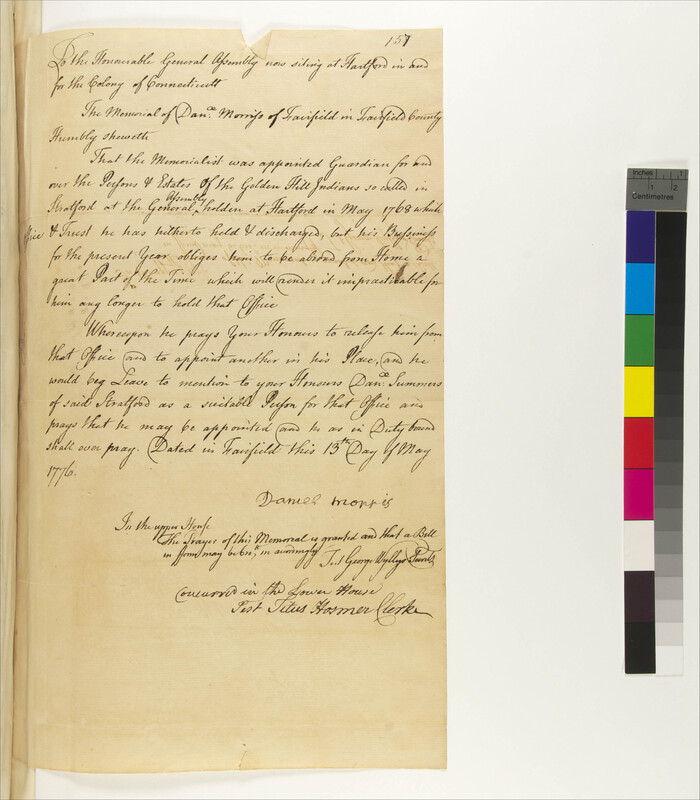 157
To the Honourable General Assembly now siting at Hartford in and
for the Colony of Connecticutt
The Memorial of Danll. Morriss of Fairfield in Fairfield County
Humbly sheweth
That the Memorialist was appointed Guardian for and
over the Persons & Estates Of the Golden Hill Indians so called in
Assembly
Stratford at the General holden at Hartford in May 1768 which
Office & Trust he has hitherto held & discharged, but his Bussiness
for the present Year obliges him to be abroad from Home a
great Part of the Time which will render it impracticable for
him any longer to hold that Office
Whereupon he prays Your Honours to release him from
that Office and to appoint another in his Place, and he
would beg Leave to mention to your Honours Danll. Summers
of said Stratford as a suitable Person for that Office and
prays that he may be appointed and he as in Duty bound
shall ever pray. Dated in Fairfield this 13th Day of May
1776.
Daniel Morris
In the upper House
The Prayer of this Memorial is granted and that a Bill
in form may be in accordingly
Test George Wyllys Secrety
Concurred in the Lower House
Test Titus Hosmer Clerk
Inches
1 2
Centimetres